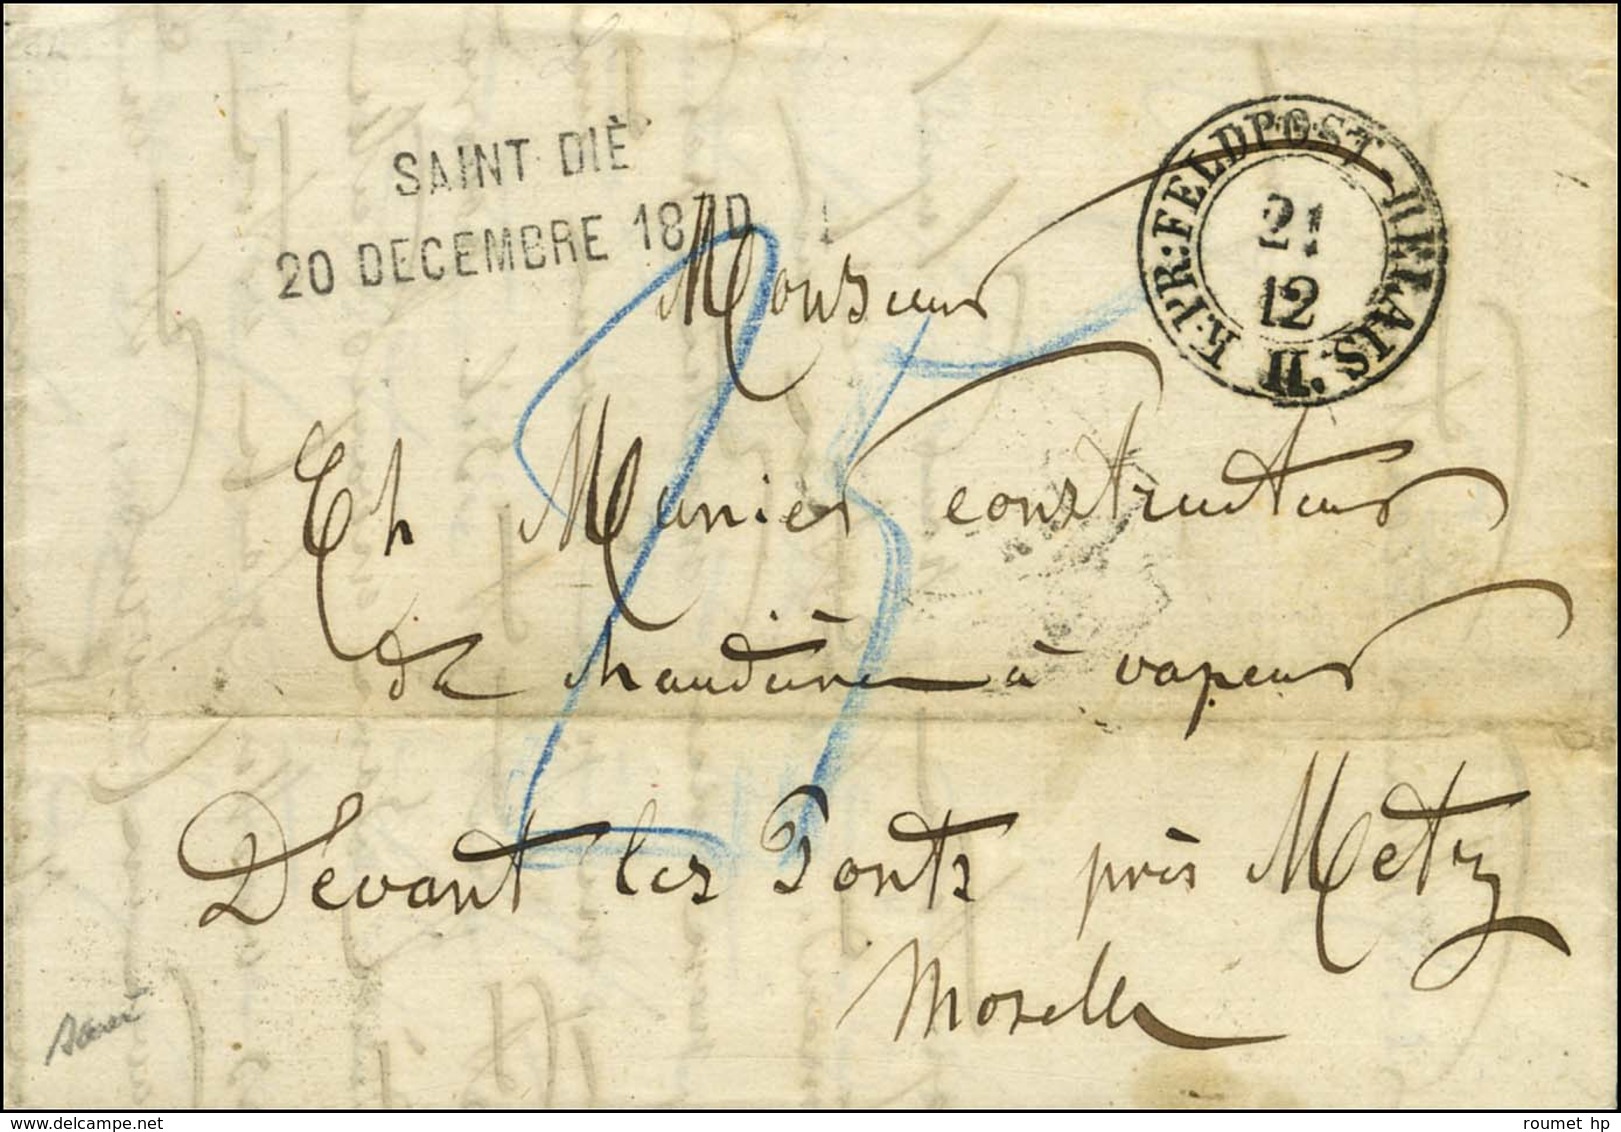 SAINT DIÈ
20 DECEMBRE 1870
K:PR:FELDPOST-RELAIS.
21
12
II.
Monsieur
Ch Munier constructeur
de chaudières à vapeur
Dévant les Ponts près Metz
Moselle
25
roumet hp